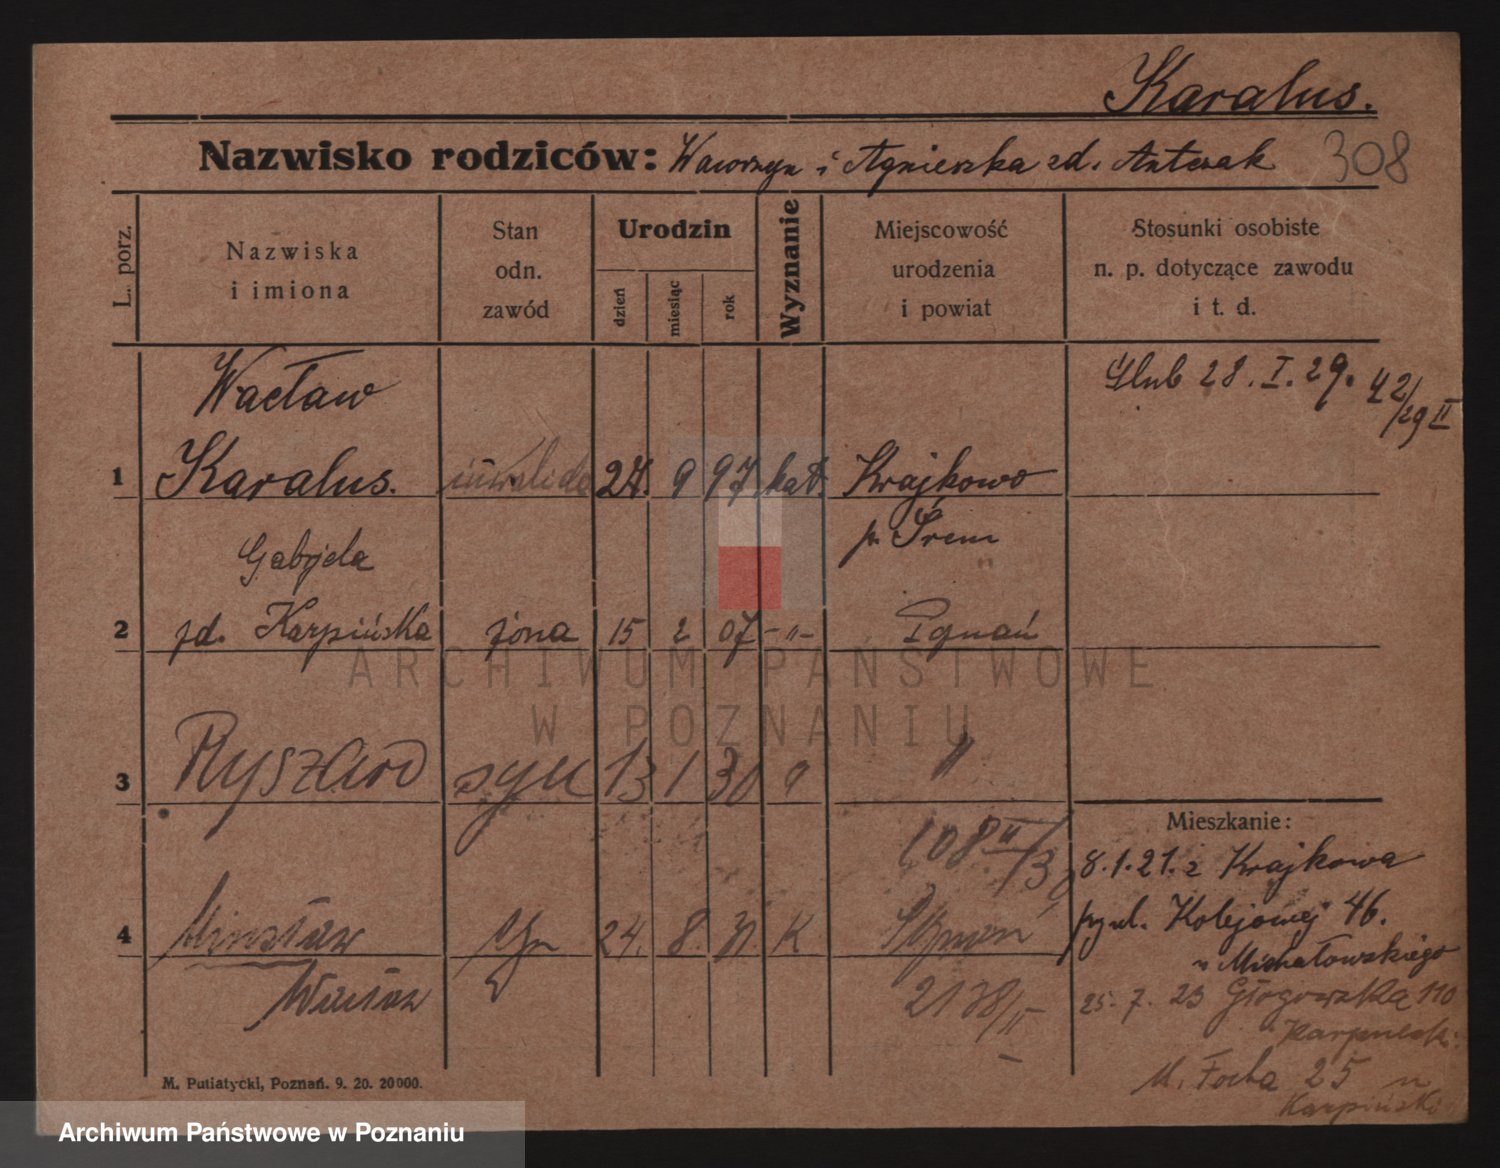 Karalus.
Nazwisko rodziców: Wawrzyn i Agnieszka zd. Antczak 308
L. porz.
Nazwiska
i imiona
Stan
odn.
zawód
Urodzin
dzień
miesiąc
rok
Wyznanie
Miejscowość
urodzenia
i powiat
Stosunki osobiste
n. p. dotyczące zawodu
i t. d.
Wacław
Ślub 28. I. 29. 42/29 II
1 Karalus. inwalida 27. 9 97. kat. Krajkowo
p. Śrem
Gabrjela
2 zd. Karpińska żona 15 2 07 -"- Poznań
ARCHIWUM PAŃSTWOWE
W POZNANIU
3 Ryszard syn 13 1 30 " "
108 II/30
Mieszkanie:
8.1.21. z Krajkowa
przy ul. Kolejowej 46.
4 syn 24. 8. 31 K Poznań
u Michałowskiego
Wacław
2138/II
25. 7. 23 Głogowska 110
Karpiński
M. Focha 25 u
Karpiński
M. Putiatycki, Poznań. 9. 20. 20000.
Archiwum Państwowe w Poznaniu